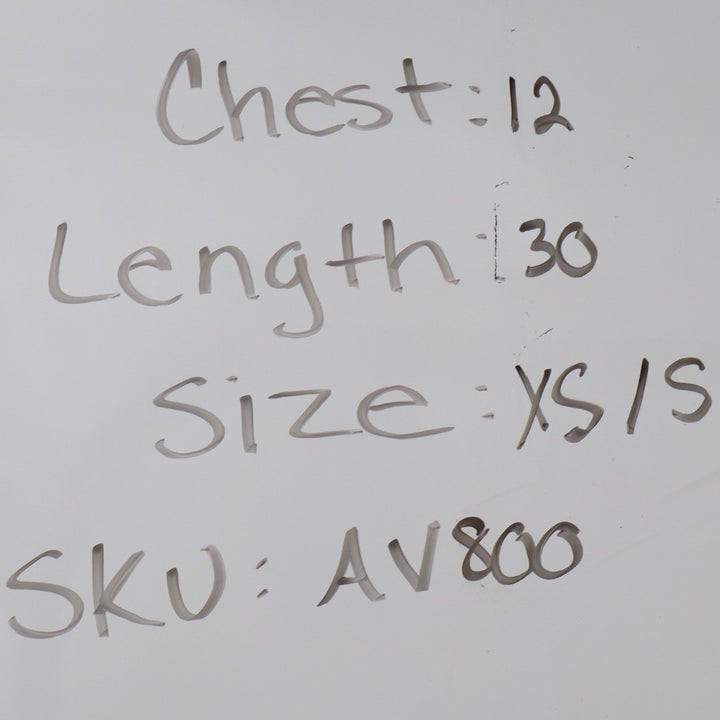 Chest: 12
Length: 30
Size: XS/S
SKU: AV800